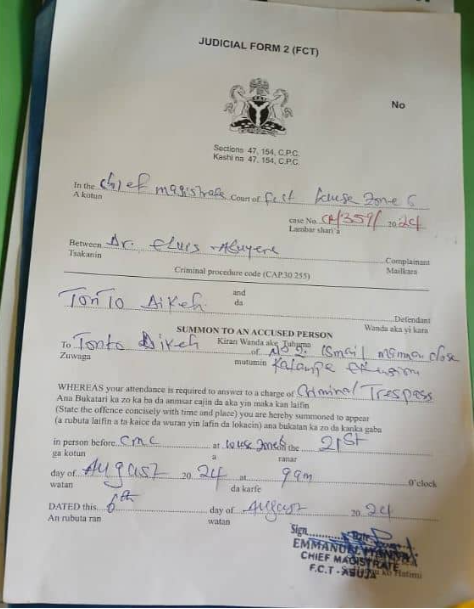 JUDICIAL FORM 2 (FCT)
No
Sections 47, 154, C.P.C.
Kashi na 47, 154, C.P.C.
In the Chief magistrate Court of fct Wuse Zone 6
A kotun
case No. CR/359/ 2024
Lambar shari'a
Between Dr. Elvis Complainant
Tsakanin Madkara
Criminal procedure code (CAP30 255)
and
da
Tonto Dikeh Defendant
Wanda aka yi kara
SUMMON TO AN ACCUSED PERSON
Kiran Wanda ake Tuhuma
To Tonto Dikeh of No 9. Ismail close
Zuwaga mutumin Katampe
WHEREAS your attendance is required to answer to a charge of Criminal Trespass
Ana Bukatari ka zo ka ba da amsar cajin da aka yin maka kan laifin
(State the offence concisely with time and place) you are hereby summoned to appear
(a rubuta laifin a ta kaice da wuran yin lafin da lokacin) ana bukatan ka zo da kanka gaba
in person before CMC at Wuse the 21st
ga kotun a ranar
day of August 2024 at 9am O'clock
watan da karfe
DATED this 6th day of August 2024
An rubuta ran watan
Sign
EMMANUEL
CHIEF MAGISTRATE
F.C.T - ABUJA